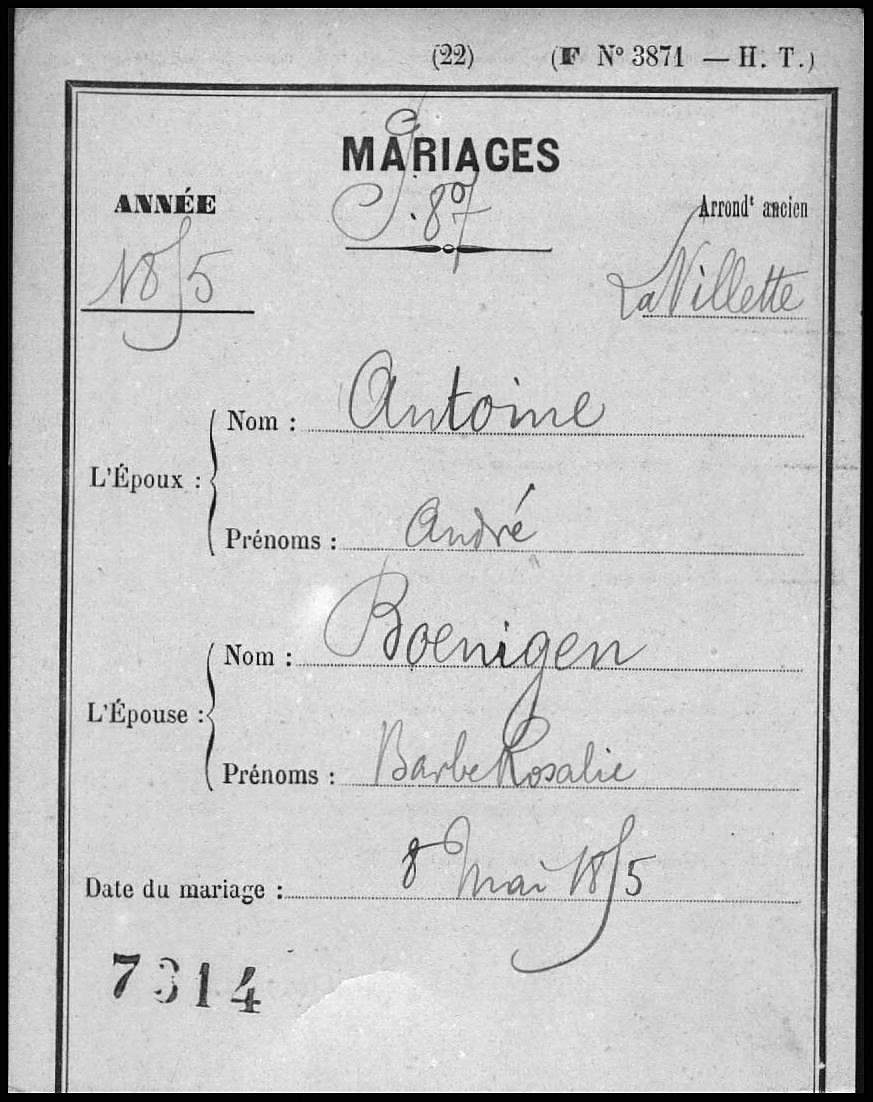 (22) (F N° 3871 — H. T.)
MARIAGES
ANNÉE
P. 87
Arrondt ancien
1855
La Villette
L'Époux :
Nom : Antoine
Prénoms : André
L'Épouse :
Nom : Boenigen
Prénoms : Barbe Rosalie
Date du mariage : 8 Mai 1855
7314